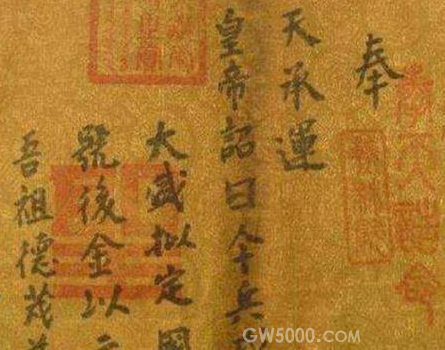 奉
天承運
皇帝詔曰今兵
大盛拟定國
號後金以
吾祖德茂
GW5000.COM